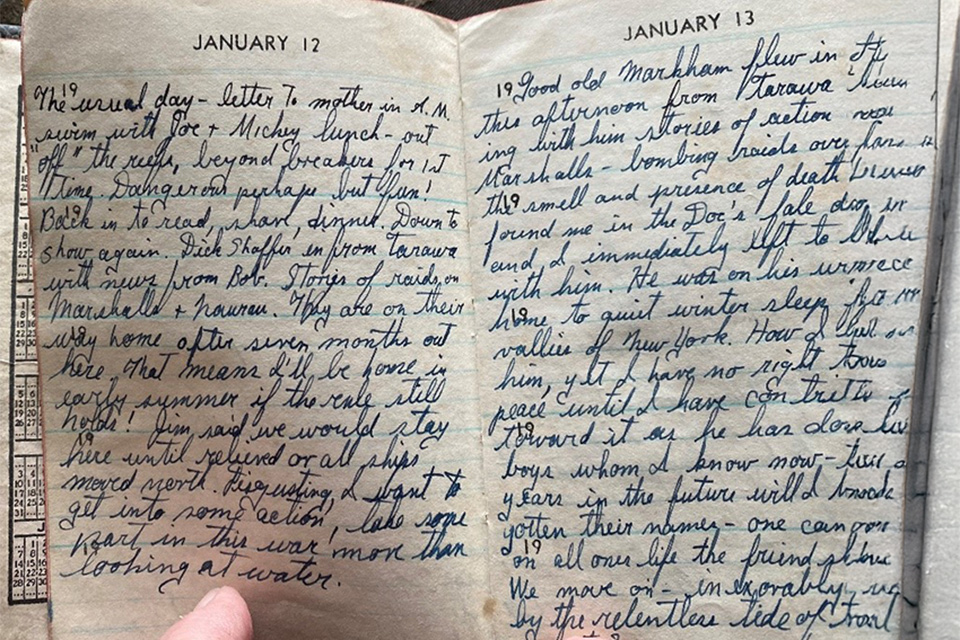 JANUARY 12
19
The usual day - letter to mother in A.M.
swim with Joe + Mickey lunch - out
"off" the reefs, beyond breakers for 1st
time. Dangerous perhaps but fun!
19
Back in to read, shave, dinner. Down to
show again. Dick Shaffer in from Tarawa
with news from Bob. Stories of raids on
Marshalls + Naurau. They are on their
19
way home after seven months out
here. That means I'll be home in
early summer if the rule still
holds! Jim said we would stay
19
here until relieved or all ships
moved north. Disgusting, I want to
get into some action, take some
part in this war more than
19
looking at water.
JANUARY 13
19
Good old Markham flew in
this afternoon from Tarawa
ing with him stories of action
Marshalls - bombing raids over
19
the smell and presence of death
found me in the Doc's
and I immediately left to
with him. He was on his
19
home to quiet winter sleep
vallies of New York. How I
him, yet I have no right
peace until I have
19
toward it as he has done
boys whom I know now -
years in the future will I
gotten their names - one
19
on all ones life the friend
We move on - inexorably
by the relentless tide of